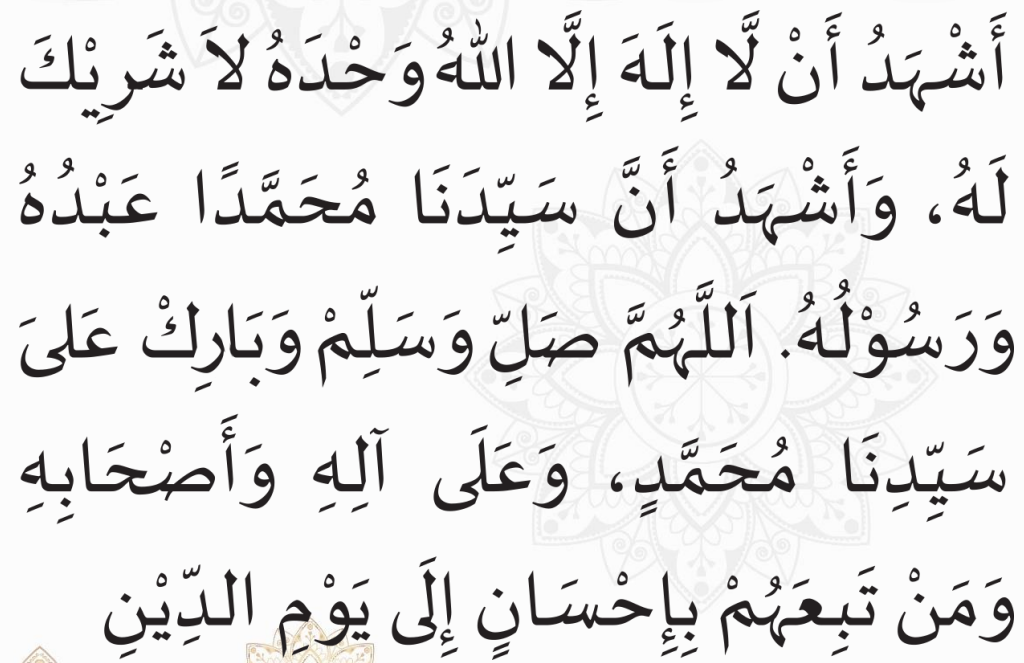 أَشْهَدُ أَنْ لَّا إِلَهَ إِلَّا اللهُ وَحْدَهُ لاَ شَرِيْكَ
لَهُ، وَأَشْهَدُ أَنَّ سَيِّدَنَا مُحَمَّدًا عَبْدُهُ
وَرَسُوْلُهُ. اَللَّهُمَّ صَلِّ وَسَلِّمْ وَبَارِكْ عَلىَ
سَيِّدِنَا مُحَمَّدٍ، وَعَلَى آلِهِ وَأَصْحَابِهِ
وَمَنْ تَبِعَهُمْ بِإِحْسَانٍ إِلَى يَوْمِ الدِّيْنِ